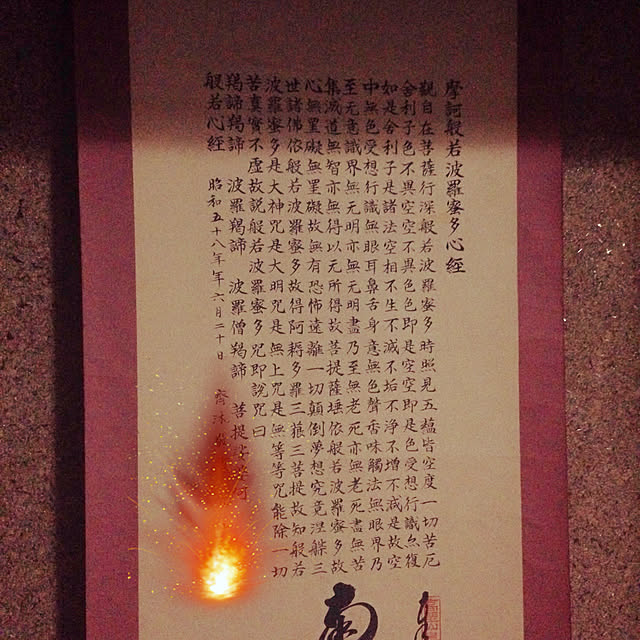 摩訶般若波羅蜜多心経
觀自在菩薩行深般若波羅蜜多時照見五蘊皆空度一切苦厄
舍利子色不異空空不異色色即是空空即是色受想行識亦復
如是舍利子是諸法空相不生不滅不垢不淨不增不減是故空
中無色受想行識無眼耳鼻舌身意無色聲香味觸法無眼界乃
至无意識界無无明亦無无明盡乃至無老死亦無老死盡無苦
集滅道無智亦無得以无所得故菩提薩埵依般若波羅蜜多故
心無罣礙無罣礙故無有恐怖遠離一切顛倒夢想究竟涅槃三
世諸佛依般若波羅蜜多故得阿耨多羅三藐三菩提故知般若
波羅蜜多是大神咒是大明咒是無上咒是無等等咒能除一切
苦真實不虛故説般若波羅蜜多咒即説咒曰
羯諦羯諦 波羅羯諦 波羅僧羯諦 菩提
般若心経 昭和五十八年年六月二十日 齋沐